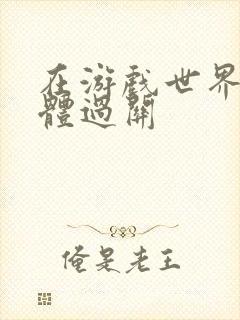 在游戲世界
體過關
俺是老王